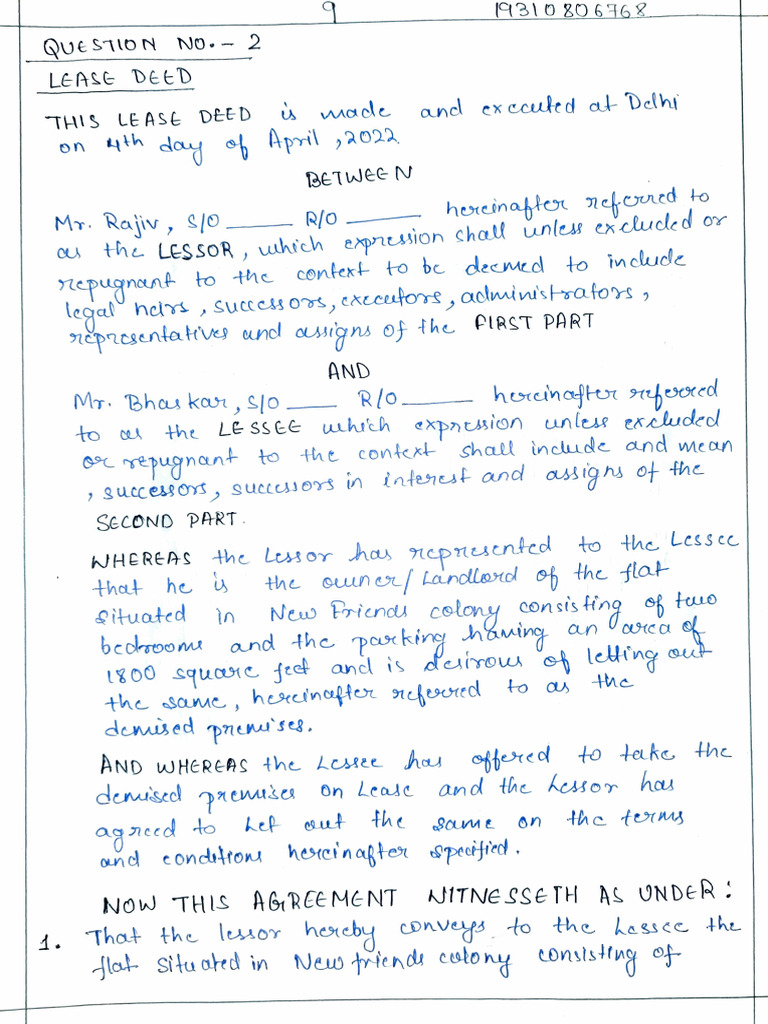 9
19310806768
QUESTION NO.- 2
LEASE DEED
THIS LEASE DEED is made and executed at Delhi
on 4th day of April, 2022.
BETWEEN
Mr. Rajiv, S/O ______ R/O ______ hereinafter referred to
as the LESSOR, which expression shall unless excluded or
repugnant to the context to be deemed to include
legal heirs, successors, executors, administrators,
representatives and assigns of the FIRST PART
AND
Mr. Bhaskar, S/O ____ R/O ______ hereinafter referred
to as the LESSEE which expression unless excluded
or repugnant to the context shall include and mean
, successors, successors in interest and assigns of the
SECOND PART.
WHEREAS the Lessor has represented to the Lessee
that he is the owner/Landlord of the flat
situated in New Friends colony consisting of two
bedrooms and the parking having an area of
1800 square feet and is desirous of letting out
the same, hereinafter referred to as the
demised premises.
AND WHEREAS the Lessee has offered to take the
demised premises on Lease and the Lessor has
agreed to Let out the same on the terms
and conditions hereinafter specified.
NOW THIS AGREEMENT WITNESSETH AS UNDER:
1. That the lessor hereby conveys to the Lessee the
flat situated in New friends colony consisting of